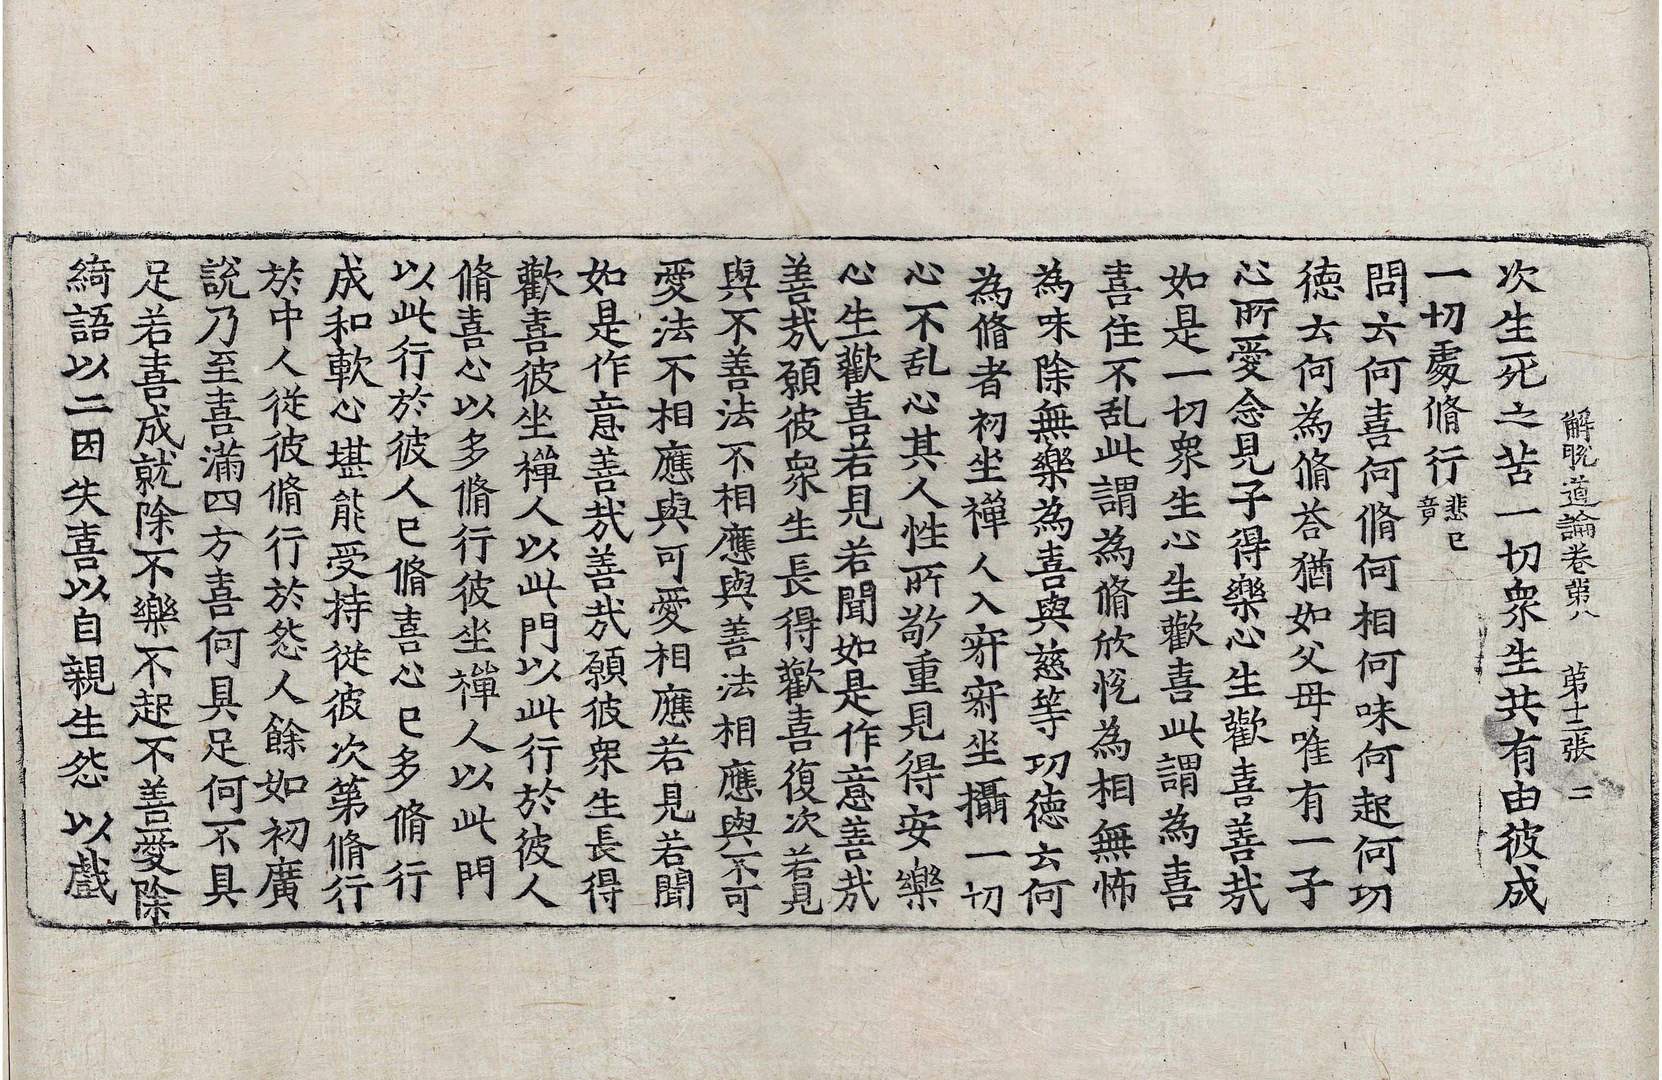 解脫道論卷第八 第十二張 二
次生死之苦一切衆生共有由彼成
一切處脩行悲已
竟
問云何喜何脩何相何味何起何功
德云何為脩荅猶如父母唯有一子
心所愛念見子得樂心生歡喜善㢤
如是一切衆生心生歡喜此謂為喜
喜住不乱此謂為脩欣恱為相無怖
為味除無樂為喜與慈等功德云何
為脩者初坐禪人入寂寂坐攝一切
心不乱心其人性所敬重見得安樂
心生歡喜若見若聞如是作意善㢤
善㢤願彼衆生長得歡喜復次若見
與不善法不相應與善法相應與不可
愛法不相應與可愛相應若見若聞
如是作意善㢤善㢤願彼衆生長得
歡喜彼坐禪人以此門以此行於彼人
脩喜心以多脩行彼坐禪人以此門
以此行於彼人已脩喜心已多脩行
成和軟心堪能受持從彼次第脩行
於中人從彼脩行於怨人餘如初廣
說乃至喜滿四方喜何具足何不具
足若喜成就除不樂不起不善愛除
綺語以二因失喜以自親生怨以戲